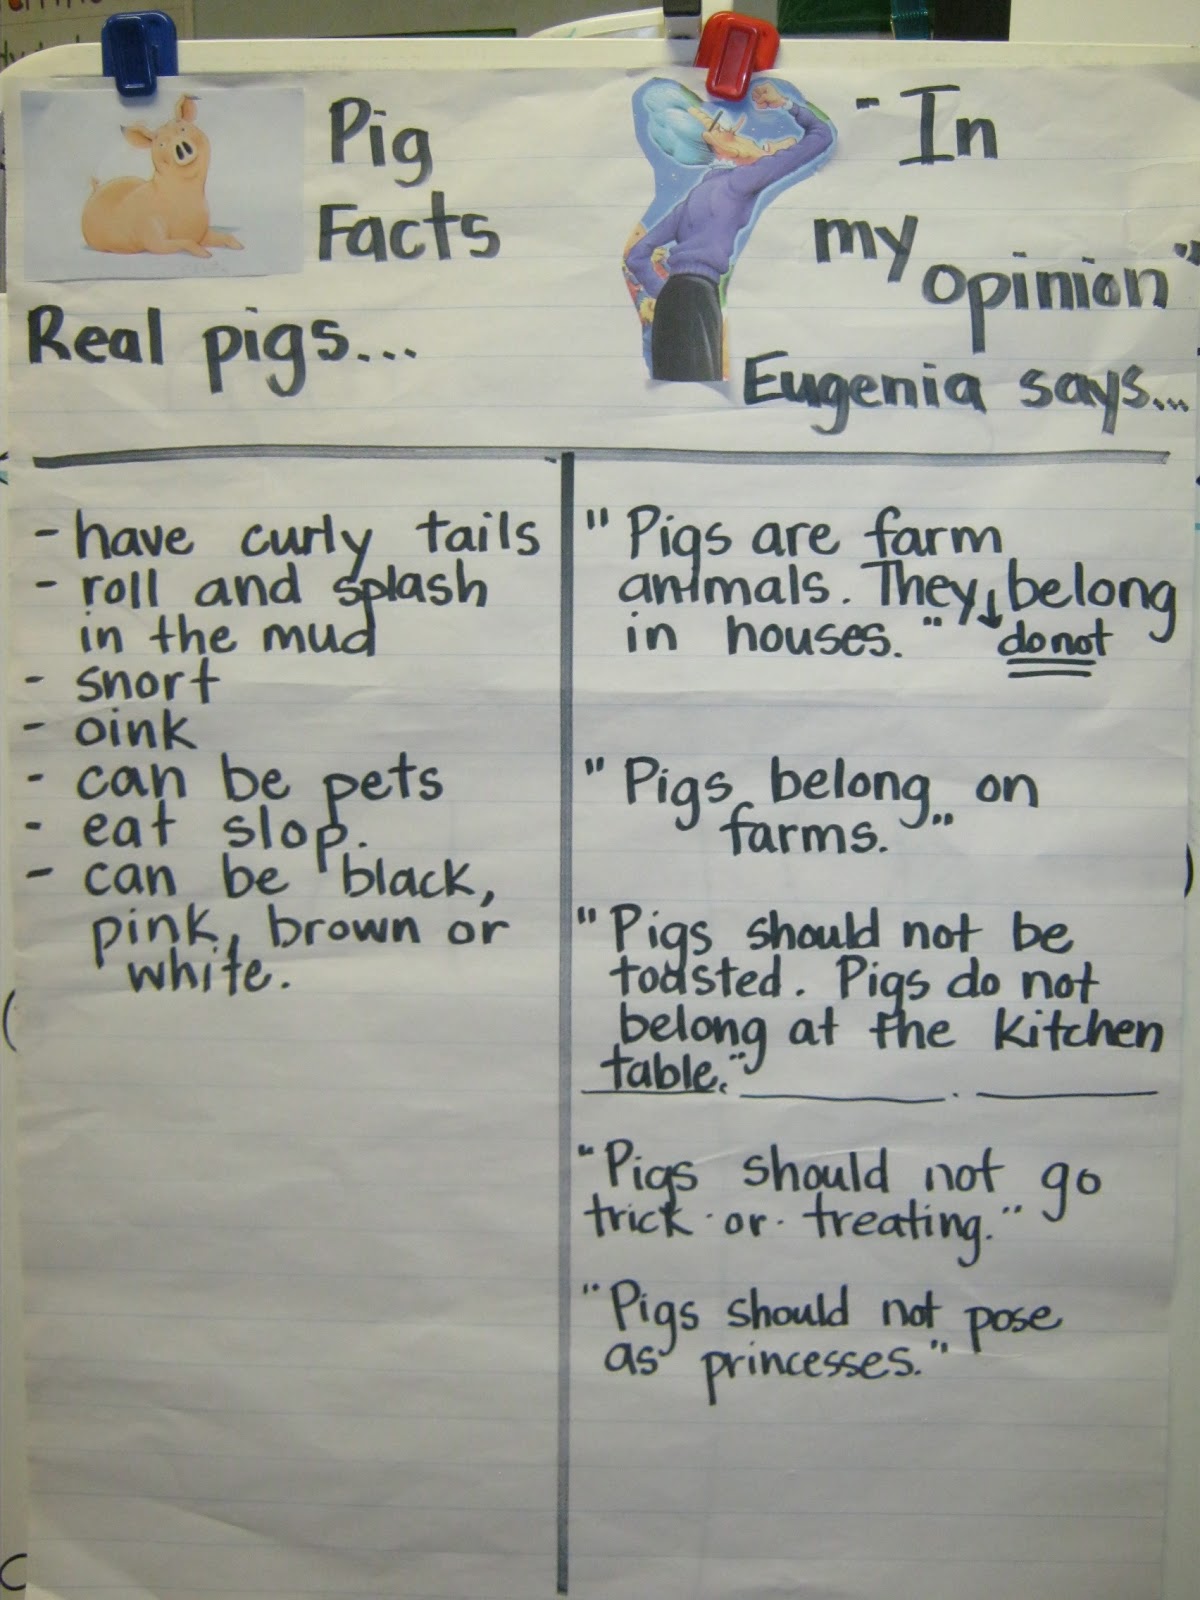 Pig
Facts
Real pigs...
- have curly tails
- roll and splash
in the mud
- snort
- oink
- can be pets
- eat slop.
- can be black,
pink, brown or
white.
"In
my opinion"
Eugenia says...
"Pigs are farm
animals. They ↓ belong
do not
in houses."
"Pigs belong on
farms."
"Pigs should not be
toasted. Pigs do not
belong at the kitchen
table."
"Pigs should not go
trick-or-treating."
"Pigs should not pose
as princesses."